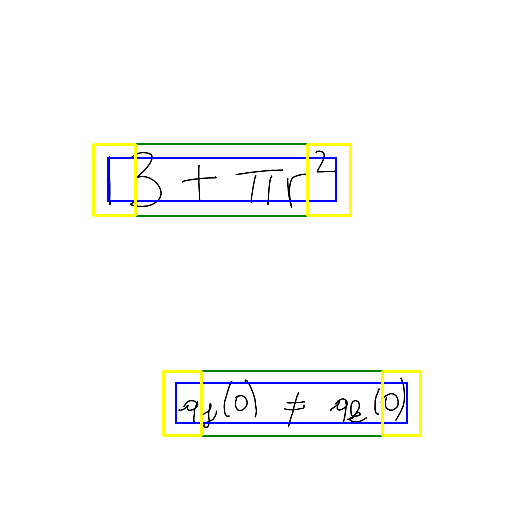 13 + πr²
q_f(0) ≠ q_k(0)